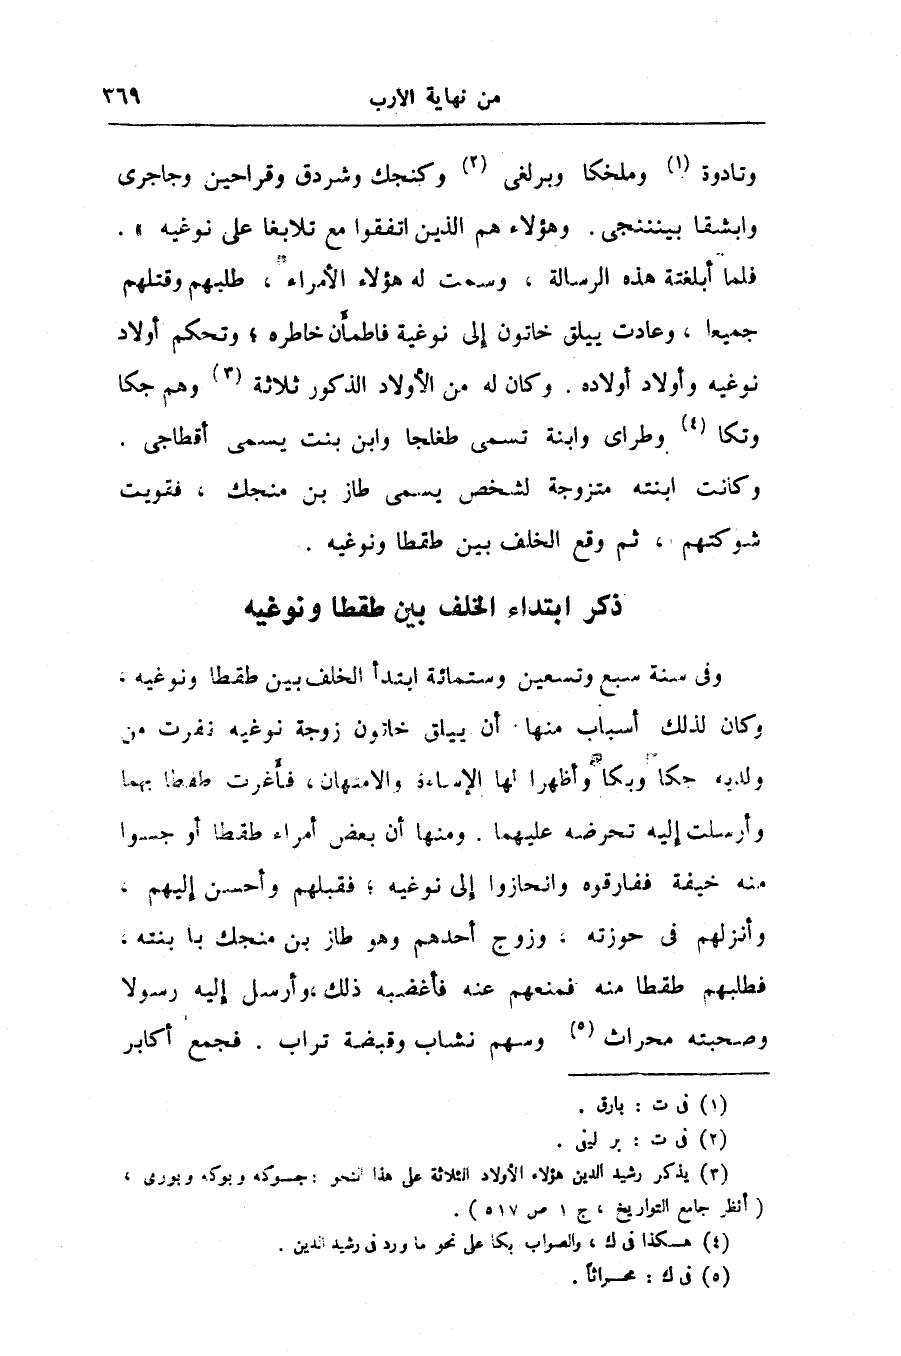 من نهاية الأرب ٣٦٩
وتادوة (١) وملخكا وبرلغى (٢) وكنجك وشردق وقراحين وجاجرى
وابشقا بينننجى . وهؤلاء هم الذين اتفقوا مع تلابغا على نوغيه » .
فلما أبلغتة هذه الرسالة ، وسمت له هؤلاء الأمراء ، طلبهم وقتلهم
جميعا ، وعادت بيلق خاتون إلى نوغية فاطمأن خاطره ؛ وتحكم أولاد
نوغيه وأولاد أولاده . وكان له من الأولاد الذكور ثلاثة (٣) وهم جكا
وتكا (٤) وطراى وابنة تسمى طغلجا وابن بنت يسمى أقطاجى .
وكانت ابنته متزوجة لشخص يسمى طاز بن منجك ، فقويت
شوكتهم ، ثم وقع الخلف بين طقطا ونوغيه .
ذكر ابتداء الخلف بين طقطا ونوغيه
وفى سنة سبع وتسعين وستمائة ابتدأ الخلف بين طقطا ونوغيه ،
وكان لذلك أسباب منها أن بيلق خاتون زوجة نوغيه نفرت من
ولديه جكا وبكا وأظهرا لها الإساءة والامتهان ، فأغرت طقطا بهما
وأرسلت إليه تحرضه عليهما . ومنها أن بعض أمراء طقطا أو جسوا
منه خيفة ففارقوه وانحازوا إلى نوغيه ؛ فقبلهم وأحسن إليهم ،
وأنزلهم فى حوزته ، وزوج أحدهم وهو طاز بن منجك با بنته ،
فطلبهم طقطا منه فمنعهم عنه فأغضبه ذلك ،وأرسل إليه رسولا
وصحبته محراث (٥) وسهم نشاب وقبضة تراب . فجمع أكابر
(١) فى ت : بارق .
(٢) فى ت : بر ليغى .
(٣) يذكر رشيد الدين هؤلاء الأولاد الثلاثة على هذا النحو : جسوكه وبوكه وبورى ،
( أنظر جامع التواريخ ، ج ١ ص ٥١٧ ) .
(٤) هكذا فى ك ، والصواب بكا على نحو ما ورد فى رشيد الدين .
(٥) فى ك : محراثاً .